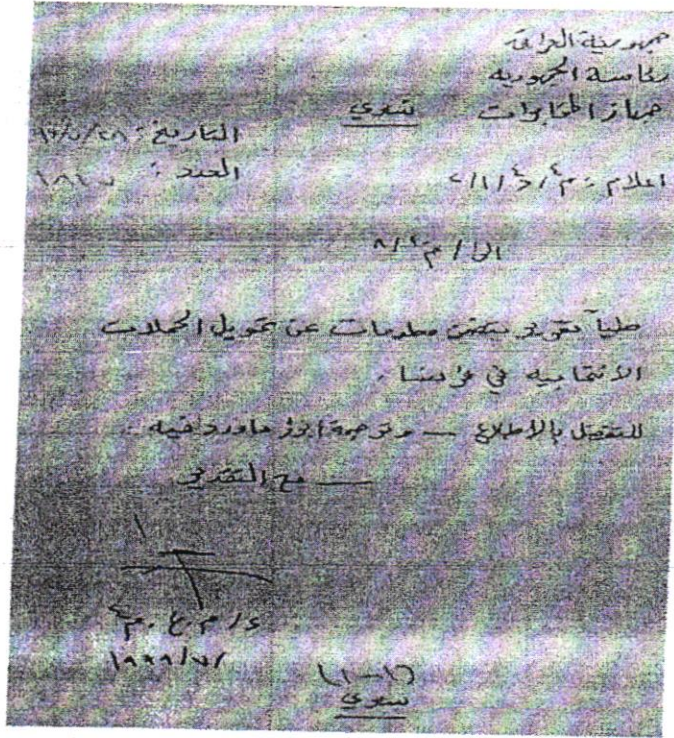 جمهورية العراق
رئاسة الجمهورية
جهاز المخابرات سري
التاريخ :
العدد :
اعلام : م٤/د٤/١/٢
الى / م٤/٨
طياً تقرير يتضمن معلومات عن تمويل الحملات
الانتخابية في فرنسا .
للتفضل بالاطلاع — وترجمة ابرز ماورد فيه
— مع التقدير
(١-١)
سري